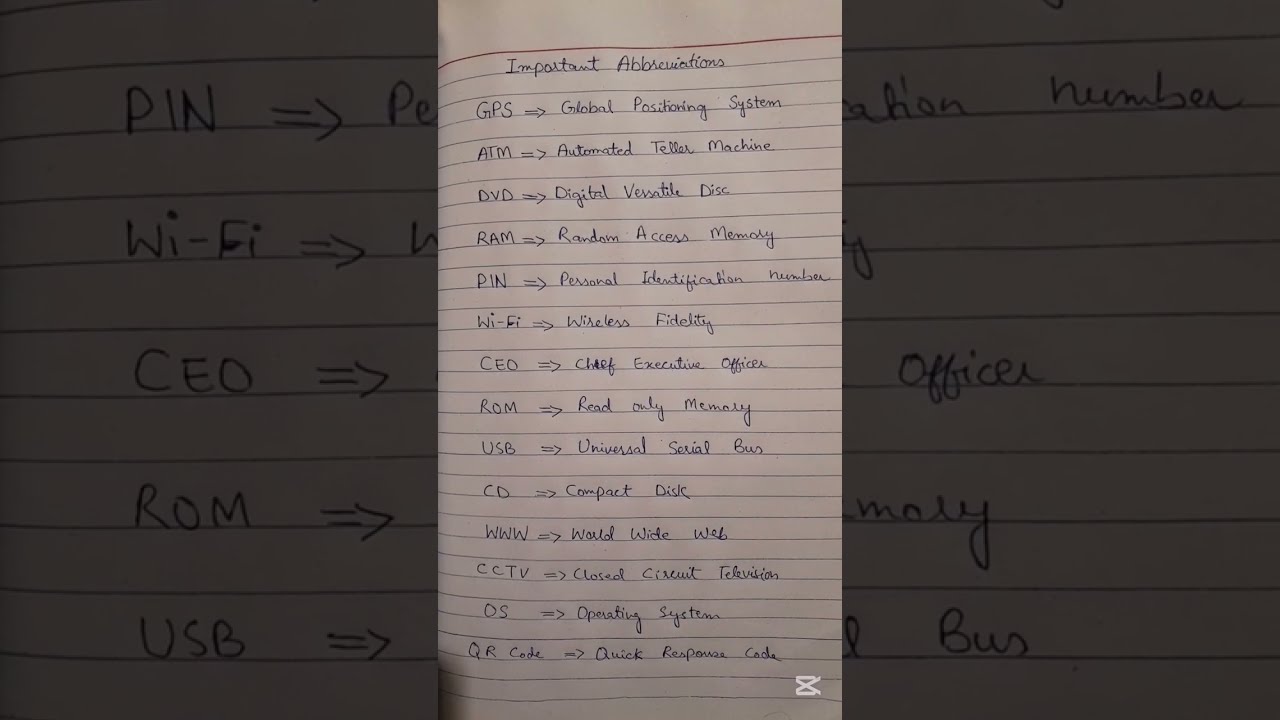 Important Abbreviations
GPS => Global Positioring System
ATM => Automated Teller Machine
DVD => Digital Versatile Disc
RAM => Random Access Memory
PIN => Personal Identification number
Wi-Fi => Wireless Fidelity
CEO => Chief Executive Officer
ROM => Read only Memory
USB => Universal Serial Bus
CD => Compact Disk
WWW => World Wide Web
CCTV => Closed Circuit Television
OS => Operating System
QR Code => Quick Response Code
PIN => Pe
cation number
Wi-Fi =>
CEO =>
Officer
ROM =>
mory
USB =>
Bus